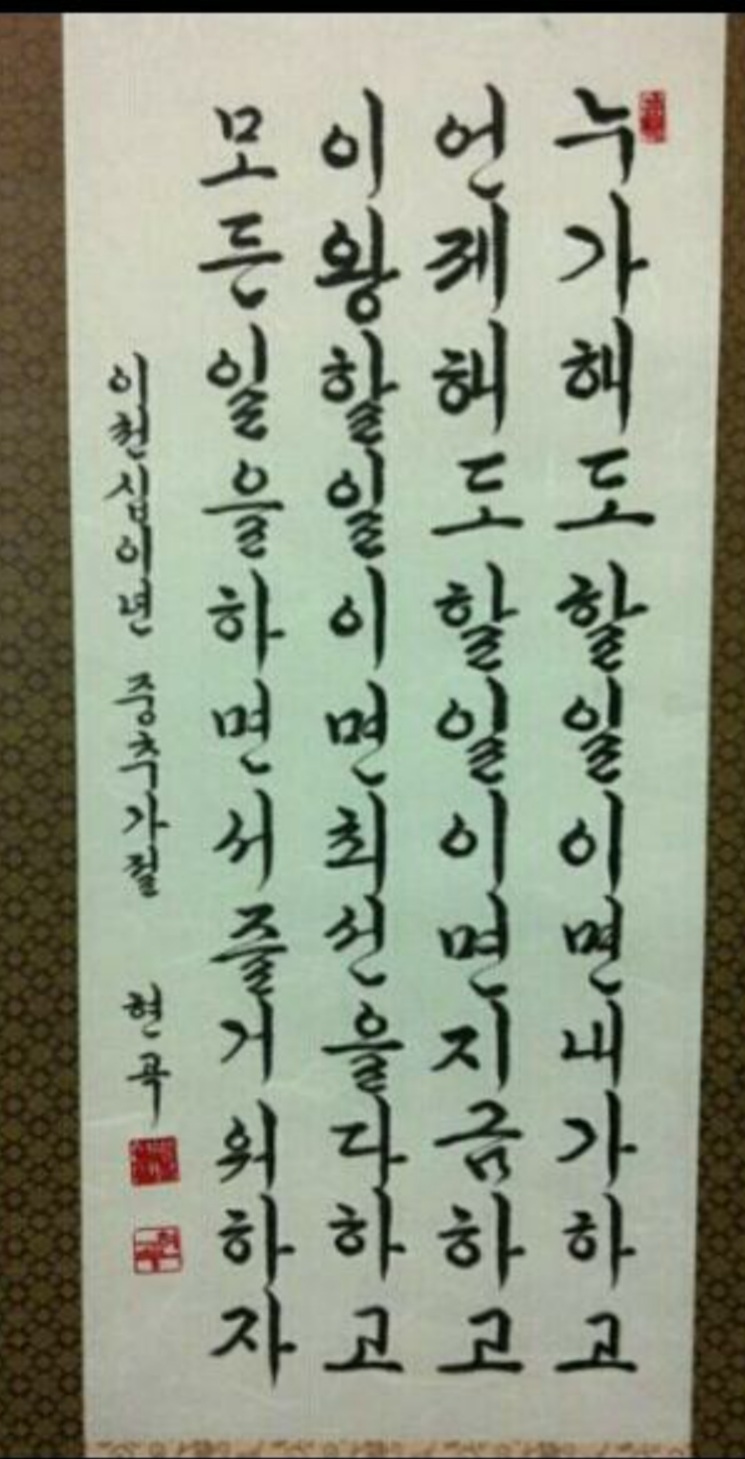 누가해도할일이면내가하고
언제해도할일이면지금하고
이왕할일이면최선을다하고
모든일을하면서즐거워하자
이천십이년 중추가절 현곡